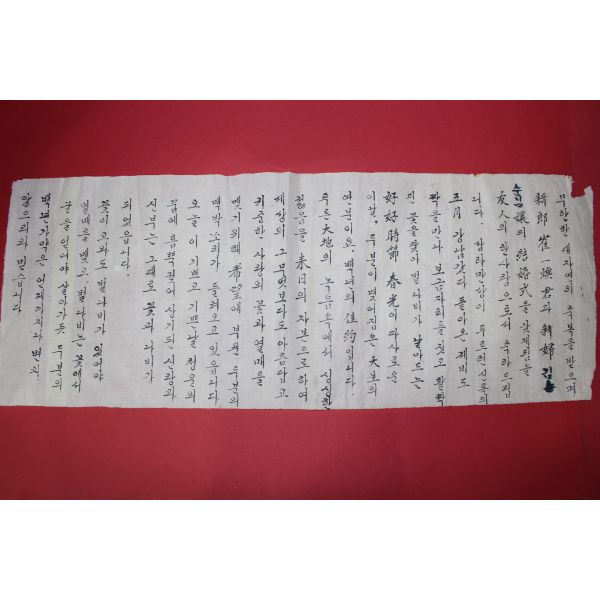 무한한 여러분의 축복을 받으며
新郎 崔一煥君과 新婦 김
순희孃의 結婚式을 맞게됨을
友人의 한사람으로서 축하드립
니다. 삼라만상이 푸르런 신록의
五月 강남갔다 돌아온 제비도
짝을만나 보금자리를 짓고 활짝
핀 꽃을찾아 벌나비가 날아드는
好好時節 春光이 따사로운
이날. 두분이 맺어짐은 天上의
연분이요. 백년의 佳約입니다.
푸른天地의 녹음속에서 싱싱한
젊음을 來日의 자본으로 하여
세상의 그무엇보다도 아름답고
귀중한 사랑의 꽃과 열매를
맺기위해 希望에 부푼 두분의
맥박소리가 들려오고 있읍니다.
오늘이 기쁘고 기쁜날 청춘의
꿈에 흠뻑젖어 상기된 신랑과
신부는 그대로 꽃과 나비가
되었읍니다.
꽃이고와도 벌나비가 있어야
열매를 맺고. 벌나비는 꽃에서
꿀을 얻어야 살아가듯 두분의
백년가약은 언제까지나 변치
않으리라 믿습니다